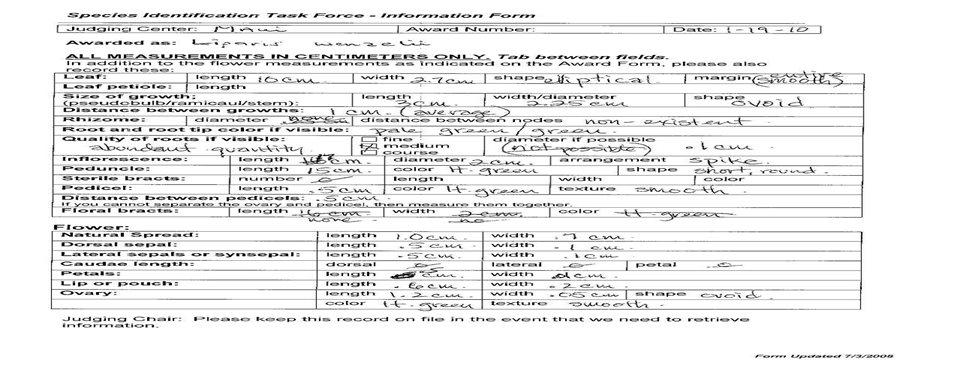 Species Identification Task Force - Information Form
Judging Center: Maui Award Number: Date: 1-19-10
Awarded as: Liparis wenzelii
ALL MEASUREMENTS IN CENTIMETERS ONLY. Tab between fields.
In addition to the flower measurements as indicated on the Award Form, please also
record these:
Leaf: length 10cm width 2.7cm shape elliptical margin entire (smooth)
Leaf petiole: length
Size of growth: length width/diameter shape
(pseudobulb/ramicaul/stem): 3cm 2.25cm ovoid
Distance between growths: 1cm. (average)
Rhizome: diameter none distance between nodes non-existent
Root and root tip color if visible: pale green/green.
Quality of roots if visible: fine diameter if possible
abundant quantity. medium (not possible) .1cm
course
Inflorescence: length cm. diameter 2cm. arrangement spike.
Peduncle: length 15cm. color lt. green shape short, round.
Sterile bracts: number 0 length width color
Pedicel: length .5cm color lt. green texture smooth.
Distance between pedicels: .5cm.
If you cannot separate the ovary and pedicel, then measure them together.
Floral bracts: length none width no color lt. green
Flower:
Natural Spread: length 1.0cm. width .7cm.
Dorsal sepal: length .5cm. width .1cm.
Lateral sepals or synsepal: length .5cm. width .1cm
Caudae length: dorsal 0 lateral 0 petal 0
Petals: length cm. width cm.
Lip or pouch: length .6cm. width .2cm.
Ovary: length 1.2cm. width .05cm shape ovoid.
color lt. green texture smooth.
Judging Chair: Please keep this record on file in the event that we need to retrieve
information.
Form Updated 7/3/2008